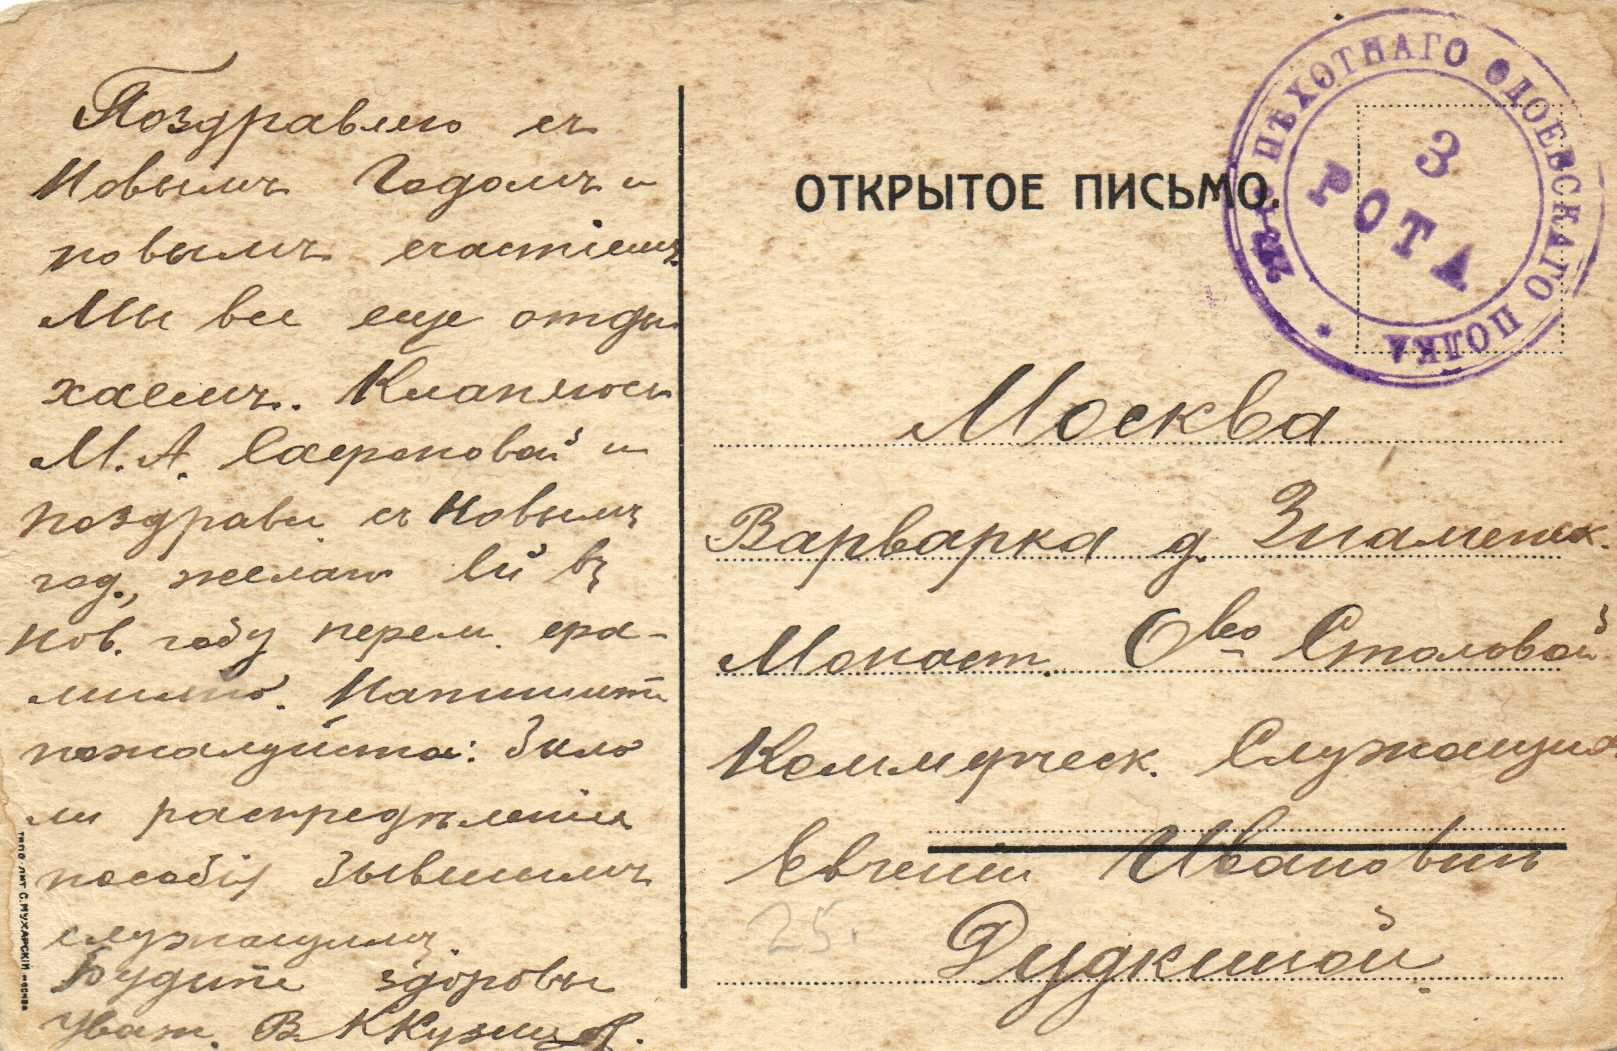 Поздравляю съ
Новымъ Годомъ и
новымъ счастіемъ
Мы все еще отды
хаемъ. Кланяюсь
М. А. Сафроновой и
поздравл. съ Новымъ
год., желаю ей въ
нов. году перем. фа-
милію. Напишите
пожалуйста: было
ли распредѣленіе
пособія бывшимъ
служащимъ.
Будьте здоровы
Уваж. В. К Кузнецов.
ТИПО ЛИТ С. МУХАРСКІЙ МОСКВА
ОТКРЫТОЕ ПИСЬМО.
ПѢХОТНАГО ОДОЕВСКАГО ПОЛКА
3
РОТА
Москва
Варварка д. Знаменск.
Монаст. О-во Столовой
Коммерческ. Служащих
Евгеніи Ивановнѣ
Дудкиной
25